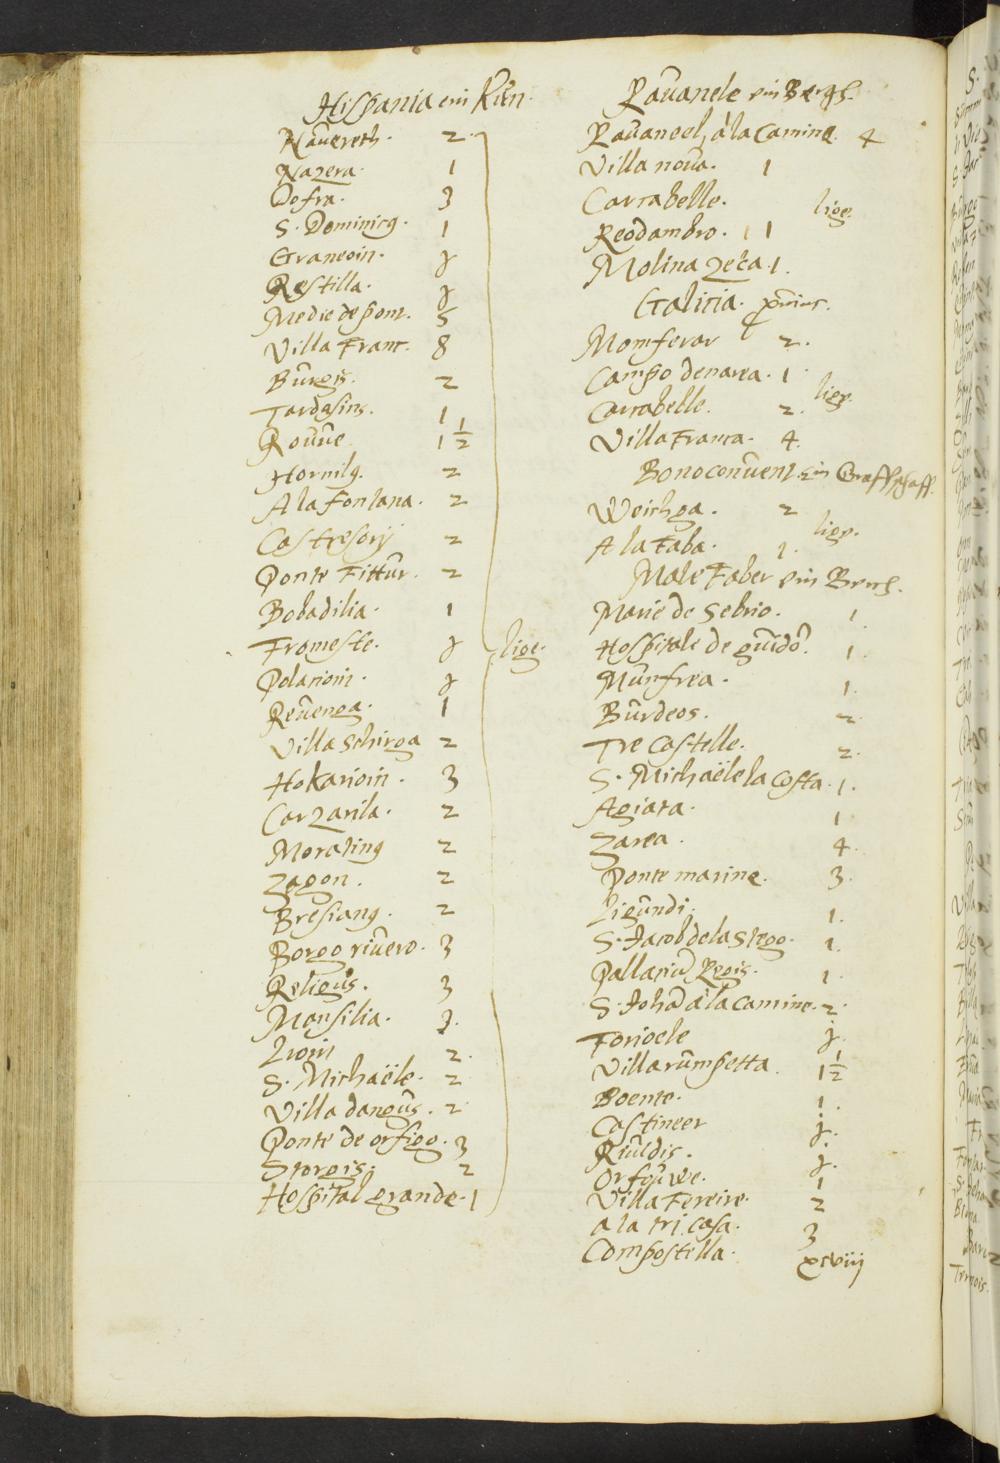 Hispania ein Kün.
Nauereth. 2
Nazera. 1
Defra. 3
S. Dominicg. 1
Graneoin. j
Restilla. j
Medie de pont. 5
Villa Franc. 8
Burgis. 2
Tardasins. 1
Rouue 1 1/2
Hornilg. 2
A la fontana. 2
Castresorij 2
Ponte Fittur. 2
Bobadilia. 1
Fromeste. j
Polarioin. j
Reuenga. 1
Villa Schirga 2
Hokarioin. 3
Carzarila. 2
Morating 2
Zagon. 2
Bresiang. 2
Borgo riuero. 3
Religus. 3
Mansilia. 3.
Lioin 2.
S. Michaële. 2
Villa dangus. 2
Ponte de orfigo. 3
Storgis. 2
Hospital grande. 1
lige.
Rauanele ein Bergh.
Rauaneel, à la Camine. 4
Villa noua. 1
Carrabelle.
lige.
Reodambro. 1 1
Molina zeca. 1.
Galicia.
Momferar 2.
Campo denarea. 1
Carrabelle. 2.
lige.
Villa Franca. 4.
Bonoconuent. ein Graffschaff.
Weichga. 2
A la Faba. 1.
lige.
Male Faber ein Berch.
Marie de Sebrio. 1.
Hospitale de guido. 1.
Munfrea. 1.
Burdeos. 2.
Tre Castelle. 2.
S. Michaële la Costa. 1.
Agiara. 1
Zarea. 4.
Ponte marine. 3.
Ligundi. 1.
S. Jacob de la Stego. 1.
Pallariu Regis. 1
S. Joha à la Camine. 2.
Forioele j.
Villa rumpetta. 1 1/2
Boente. 1.
Castineer j.
Riuldis. j.
Orfouwe. 1
Villa Fereire. 2
a la tri casa. 3
Compostella. xcviij